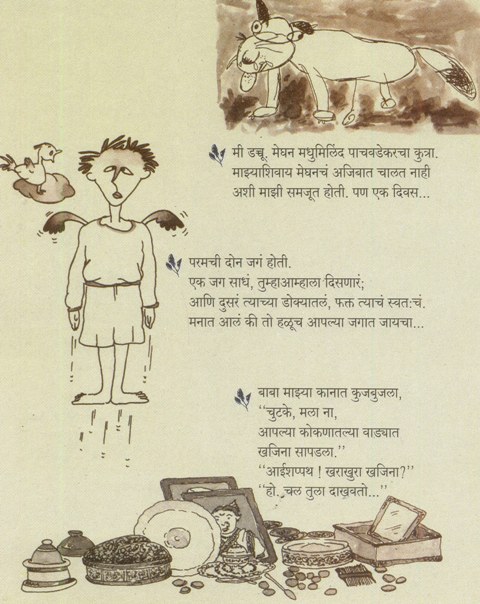 मी डब्बू. मेघन मधुमिलिंद पाचवडेकरचा कुत्रा.
माझ्याशिवाय मेघनचं अजिबात चालत नाही
अशी माझी समजूत होती. पण एक दिवस...
परमची दोन जगं होती.
एक जग साधं, तुम्हाआम्हाला दिसणारं;
आणि दुसरं त्याच्या डोक्यातलं, फक्त त्याचं स्वतःचं.
मनात आलं की तो हळूच आपल्या जगात जायचा...
बाबा माझ्या कानात कुजबुजला,
‘‘चुटके, मला ना,
आपल्या कोकणातल्या वाड्यात
खजिना सापडला.’’
‘‘आईशप्पथ ! खराखुरा खजिना?’’
‘‘हो. चल तुला दाखवतो...’’